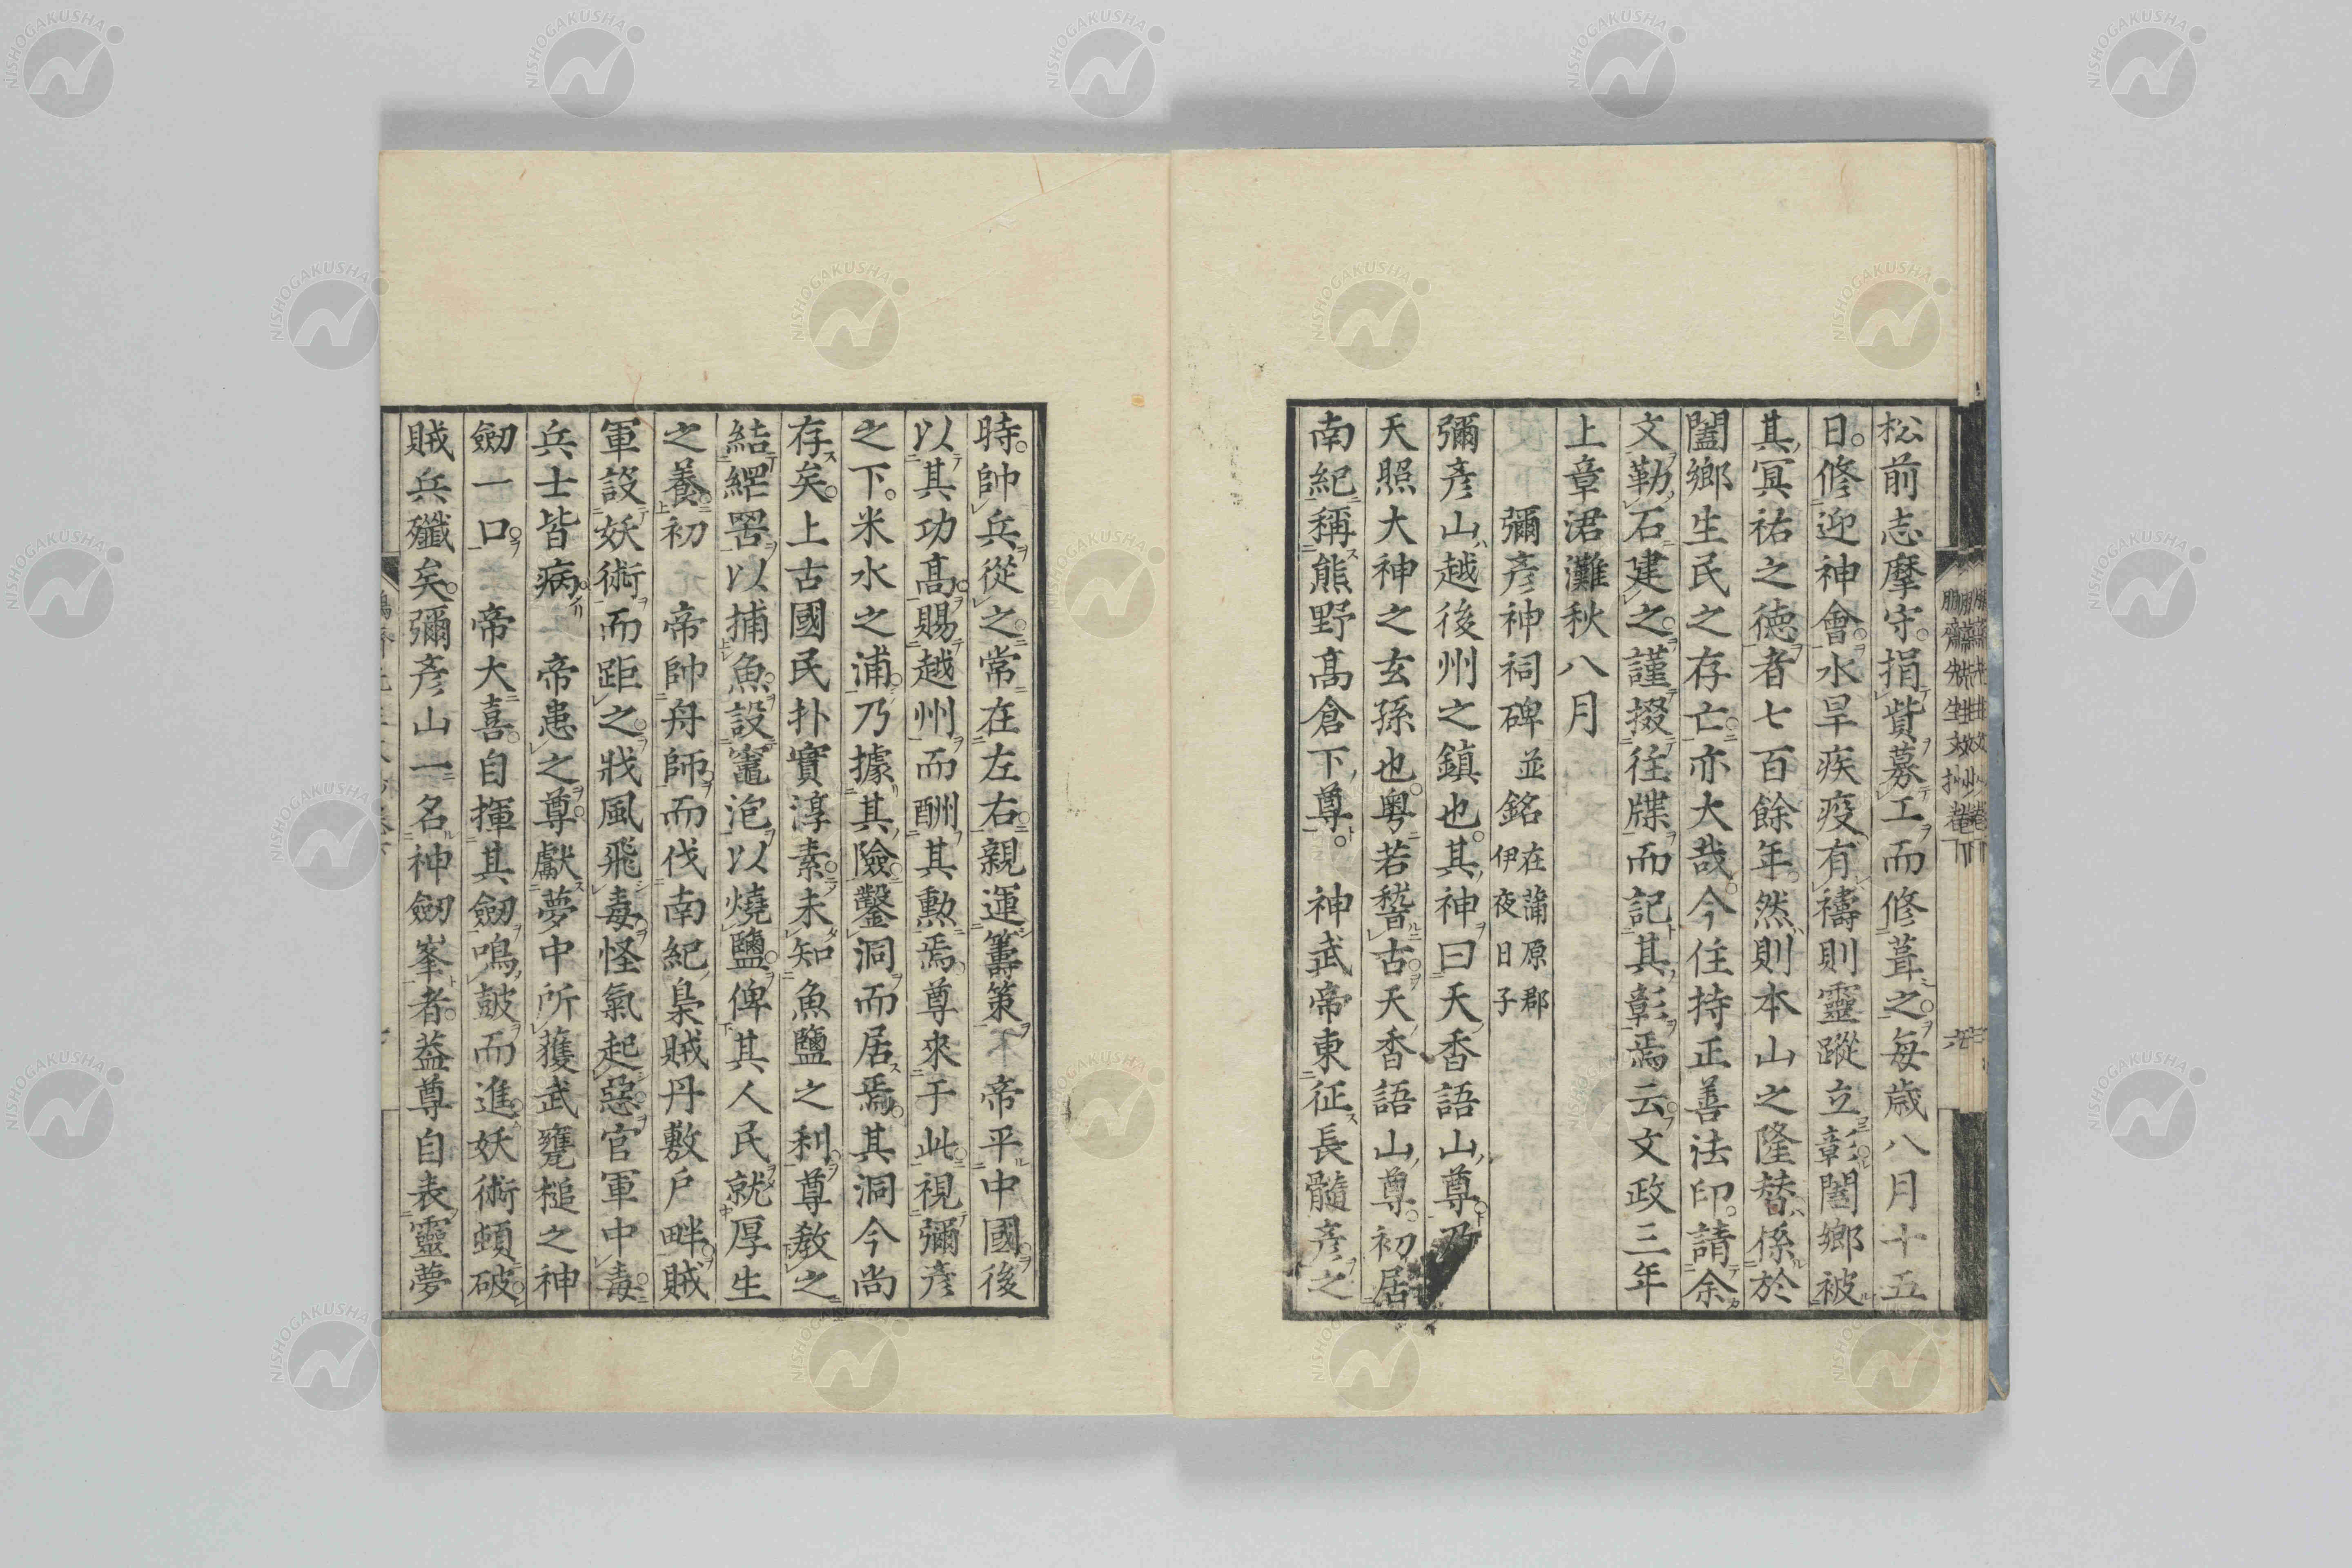 松前志摩守捐貲募工而修葺之每歳八月十五
日修迎神會水旱疾疫有禱則靈蹤立彰闔鄉被
其冥祐之德者七百餘年然則本山之隆替係於
闔鄉生民之存亡亦大哉今住持正善法印請余
文勒石建之謹掇往牒而記其彰焉云文政三年
上章涒灘秋八月
彌彥神祠碑並銘在蒲原郡伊夜日子
彌彥山越後州之鎮也其神曰天香語山尊乃
天照大神之玄孫也粤若稽古天香語山尊初居
南紀稱熊野高倉下尊 神武帝東征長髓彥之
時帥兵從之常在左右親運籌策 帝平中國後
以其功高賜越州而酬其勲焉尊來于此視彌彥
之下米水之浦乃據其險鑿洞而居焉其洞今尚
存矣上古國民扑實淳素未知魚鹽之利尊教之
結網罟以捕魚設竈泡以燒鹽俾其人民就厚生
之養初 帝帥舟師而伐南紀梟賊丹敷戶畔賊
軍設妖術而距之戕風飛毒怪氣起惡官軍中毒
兵士皆病 帝患之尊獻夢中所獲武甕槌之神
劒一口 帝大喜自揮其劒鳴鼓而進妖術頓破
賊兵殲矣彌彥山一名神劒峯者葢尊自表靈夢
NISHOGAKUSHA